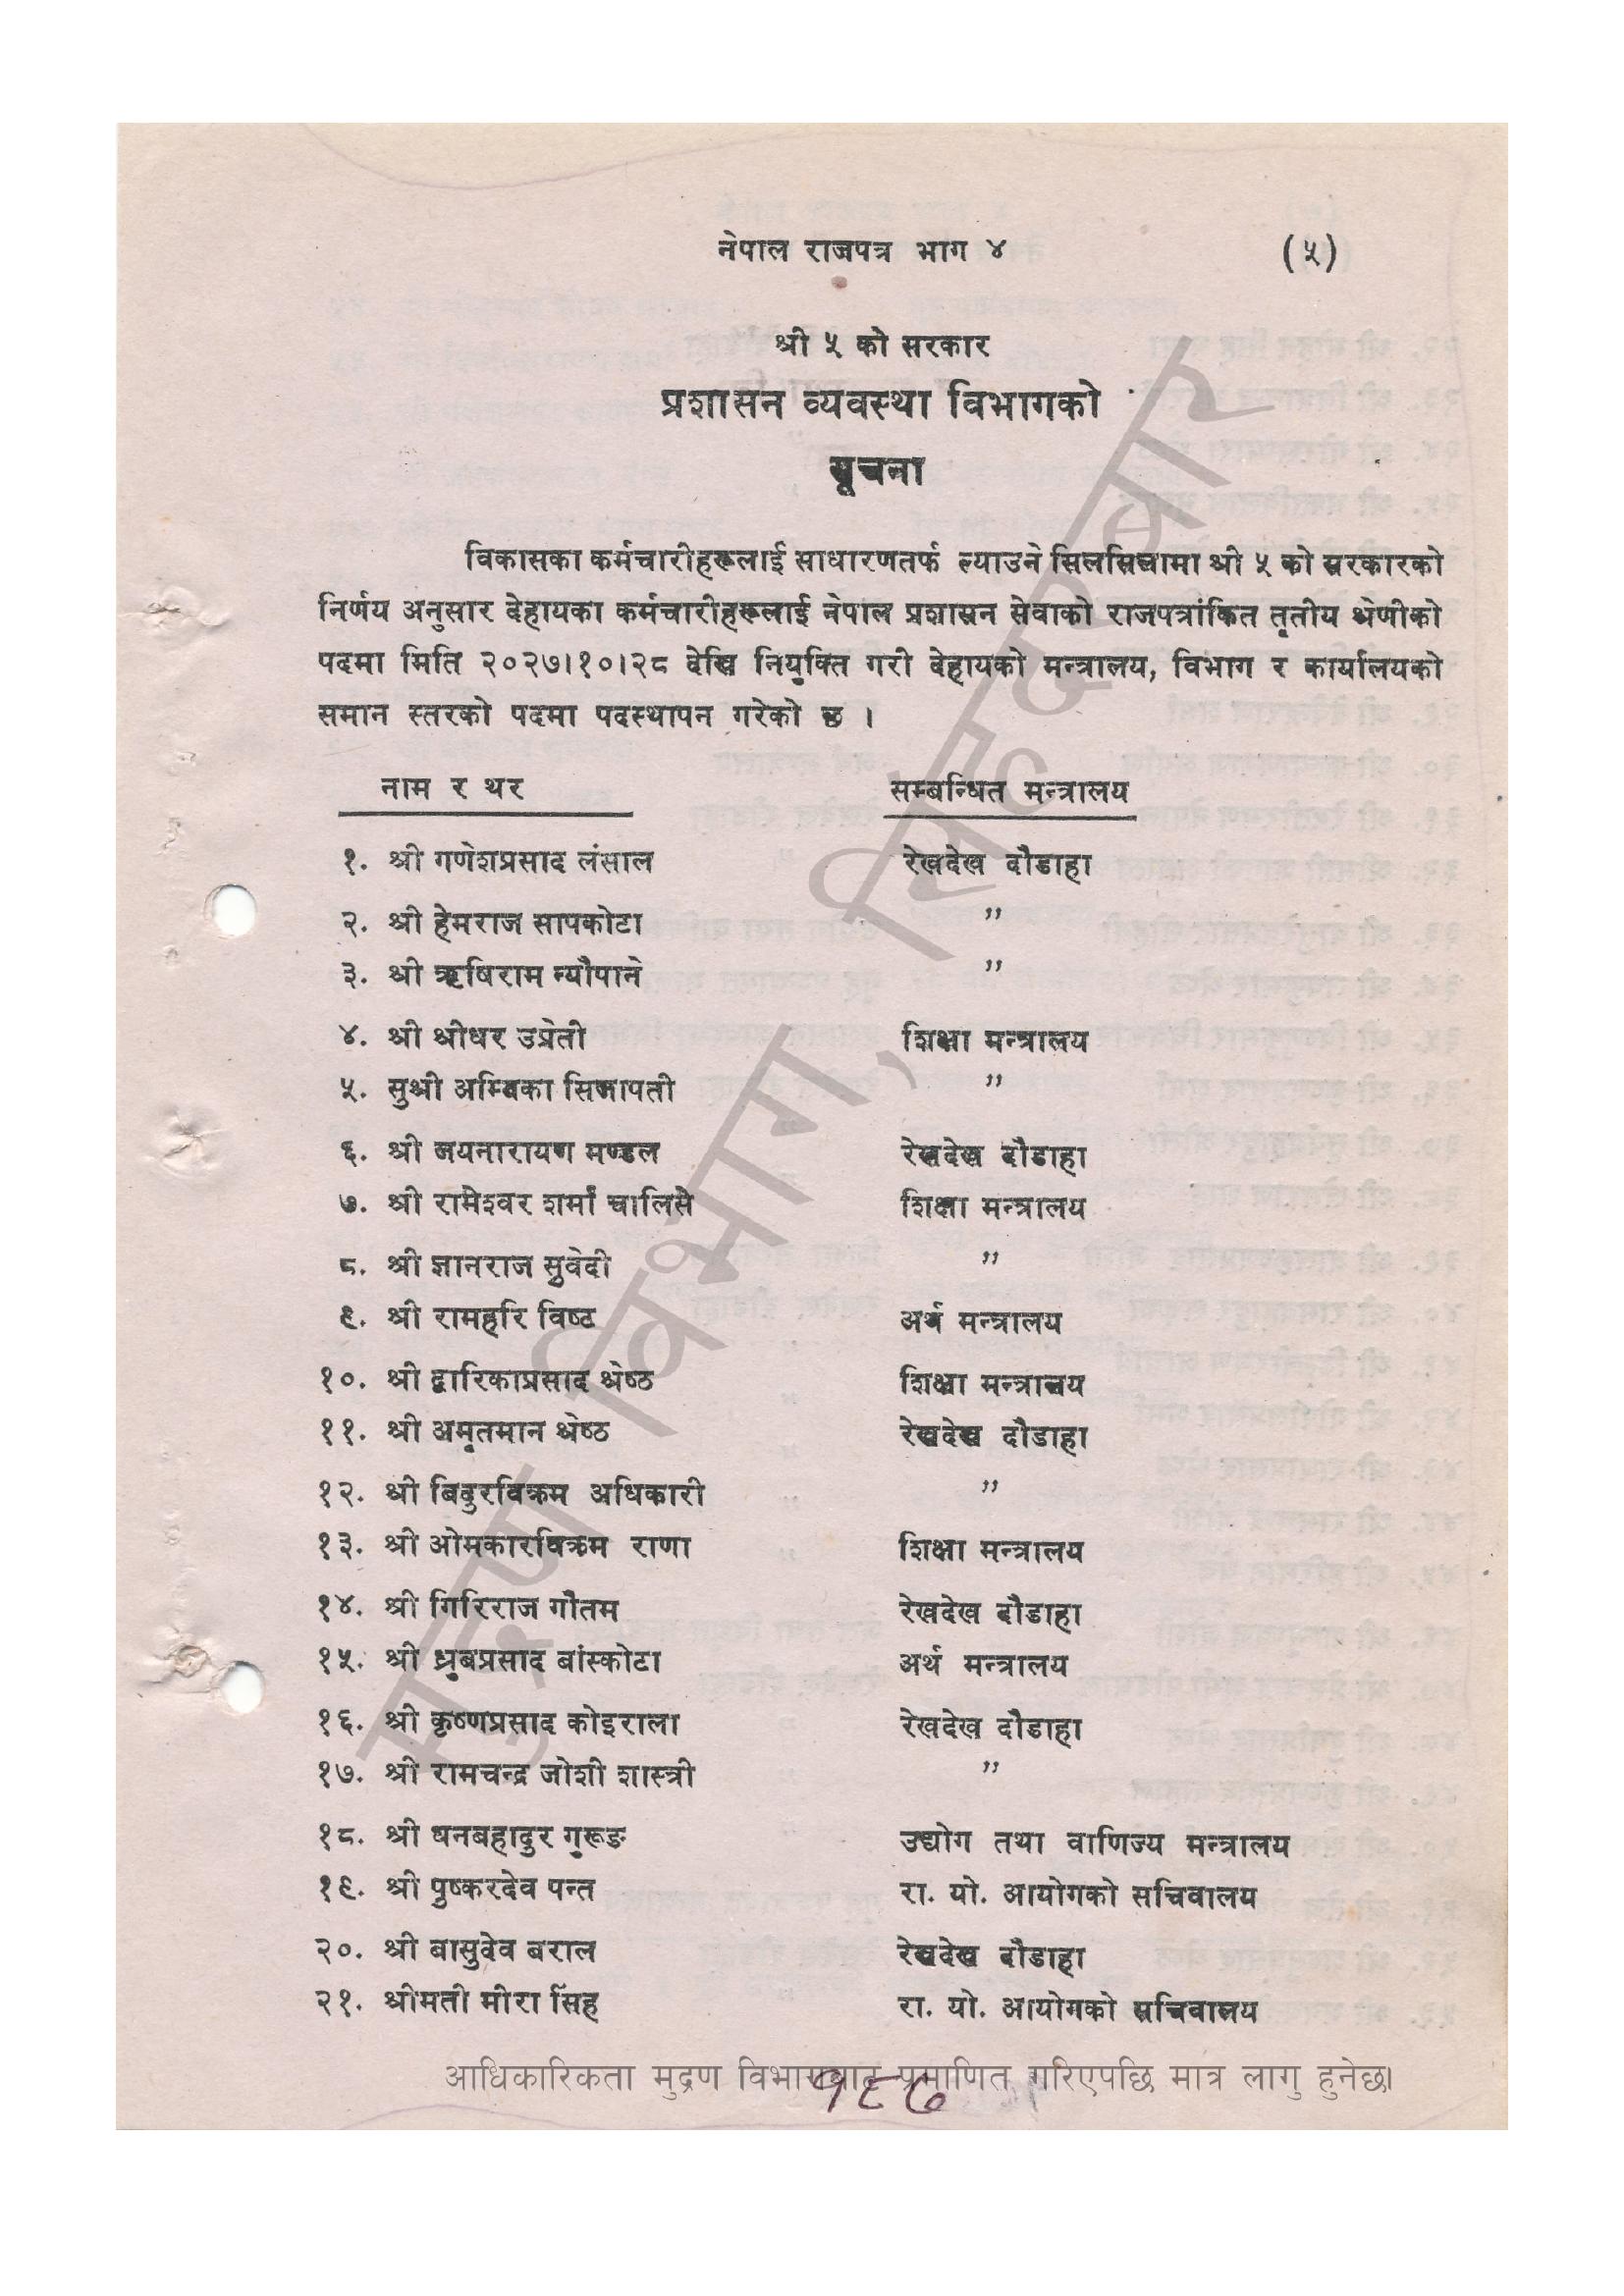 नेपाल राजपत्र भाग ४ (५)
श्री ५ को सरकार
प्रशासन व्यवस्था विभागको
सूचना
विकासका कर्मचारीहरूलाई साधारणतर्फ ल्याउने सिलसिलामा श्री ५ को सरकारको
निर्णय अनुसार देहायका कर्मचारीहरूलाई नेपाल प्रशासन सेवाको राजपत्रांकित तृतीय श्रेणीको
पदमा मिति २०२७।१०।२८ देखि नियुक्ति गरी देहायको मन्त्रालय, विभाग र कार्यालयको
समान स्तरको पदमा पदस्थापन गरेको छ ।
नाम र थर सम्बन्धित मन्त्रालय
१. श्री गणेशप्रसाद लंसाल रेखदेख दौडाहा
२. श्री हेमराज सापकोटा ”
३. श्री ऋषिराम न्यौपाने ”
४. श्री श्रीधर उप्रेती शिक्षा मन्त्रालय
५. सुश्री अम्बिका सिजापती ”
६. श्री जयनारायण मण्डल रेखदेख दौडाहा
७. श्री रामेश्वर शर्मा चालिसे शिक्षा मन्त्रालय
८. श्री ज्ञानराज सुवेदी ”
९. श्री रामहरि विष्ठ अर्थ मन्त्रालय
१०. श्री द्वारिकाप्रसाद श्रेष्ठ शिक्षा मन्त्रालय
११. श्री अमृतमान श्रेष्ठ रेखदेख दौडाहा
१२. श्री बिदुरविक्रम अधिकारी ”
१३. श्री ओमकारविक्रम राणा शिक्षा मन्त्रालय
१४. श्री गिरिराज गौतम रेखदेख दौडाहा
१५. श्री ध्रुबप्रसाद बांस्कोटा अर्थ मन्त्रालय
१६. श्री कृष्णप्रसाद कोइराला रेखदेख दौडाहा
१७. श्री रामचन्द्र जोशी शास्त्री ”
१८. श्री धनबहादुर गुरूङ उद्योग तथा वाणिज्य मन्त्रालय
१९. श्री पुष्करदेव पन्त रा. यो. आयोगको सचिवालय
२०. श्री बासुदेव बराल रेखदेख दौडाहा
२१. श्रीमती मीरा सिंह रा. यो. आयोगको सचिवालय
मुद्रण विभाग, सिंहदरबार
आधिकारिकता मुद्रण विभागबाट प्रमाणित गरिएपछि मात्र लागु हुनेछ।
१८७